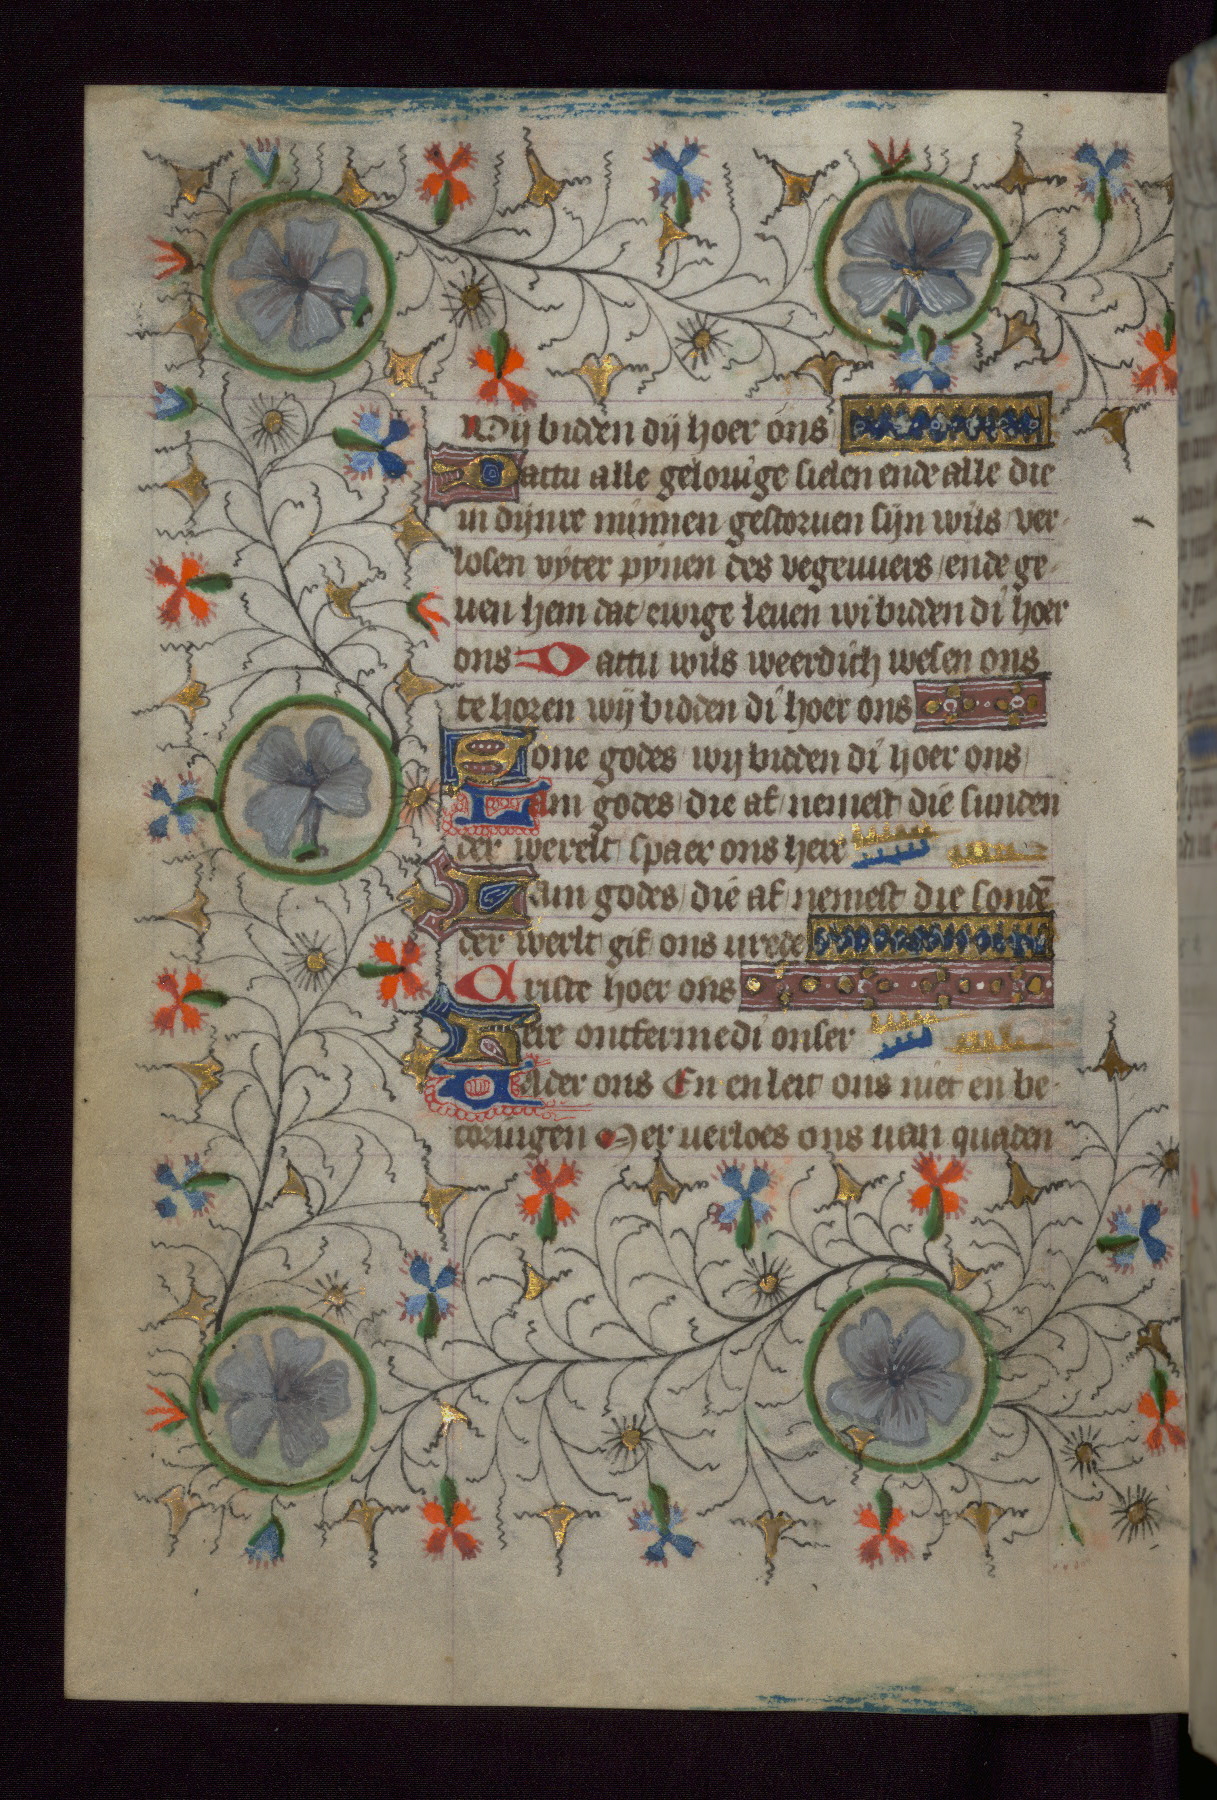 Wij bidden dij hoer ons
Dattu alle gelouige sielen ende alle die
in dijnre minnen gestoruen sijn wils ver-
losen vyter pynen des vegevuers / ende ge-
uen hem dat ewige leuen wi bidden di hoer
ons Dattu wils weerdich wesen ons
te horen wij bidden di hoer ons
Sone godes wij bidden di hoer ons
Lam godes die af nemest die sunden
der werelt spaer ons here
Lam godes die af nemest die sondē
der werlt gif ons urede
Criste hoer ons
Here ontfermedi onser
Vader ons En en leit ons niet en be-
coringen Mer uerloes ons uan quaden